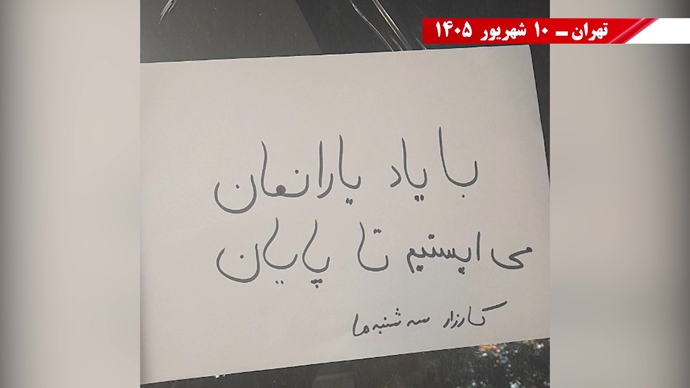 تهران ــ ۱۰ شهریور ۱۴۰۵
با یاد یارانمان
می ایستیم تا پایان
کارزار سه شنبه ها